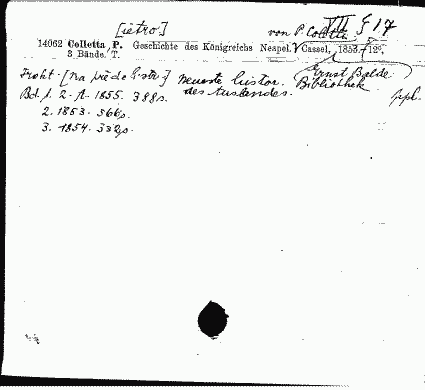 [ietro]
von P. Colletta. VII § 17
14062 Colletta, P. Geschichte des Königreichs Neapel. Cassel, 1853. 12°.
3 Bände. T.
Ernst Balde
neueste histor. Bibliothek
des Auslandes.
Bd. 1. 2. A. 1855. 388 s.
2. 1853. 366 s.
3. 1854. 332 s.